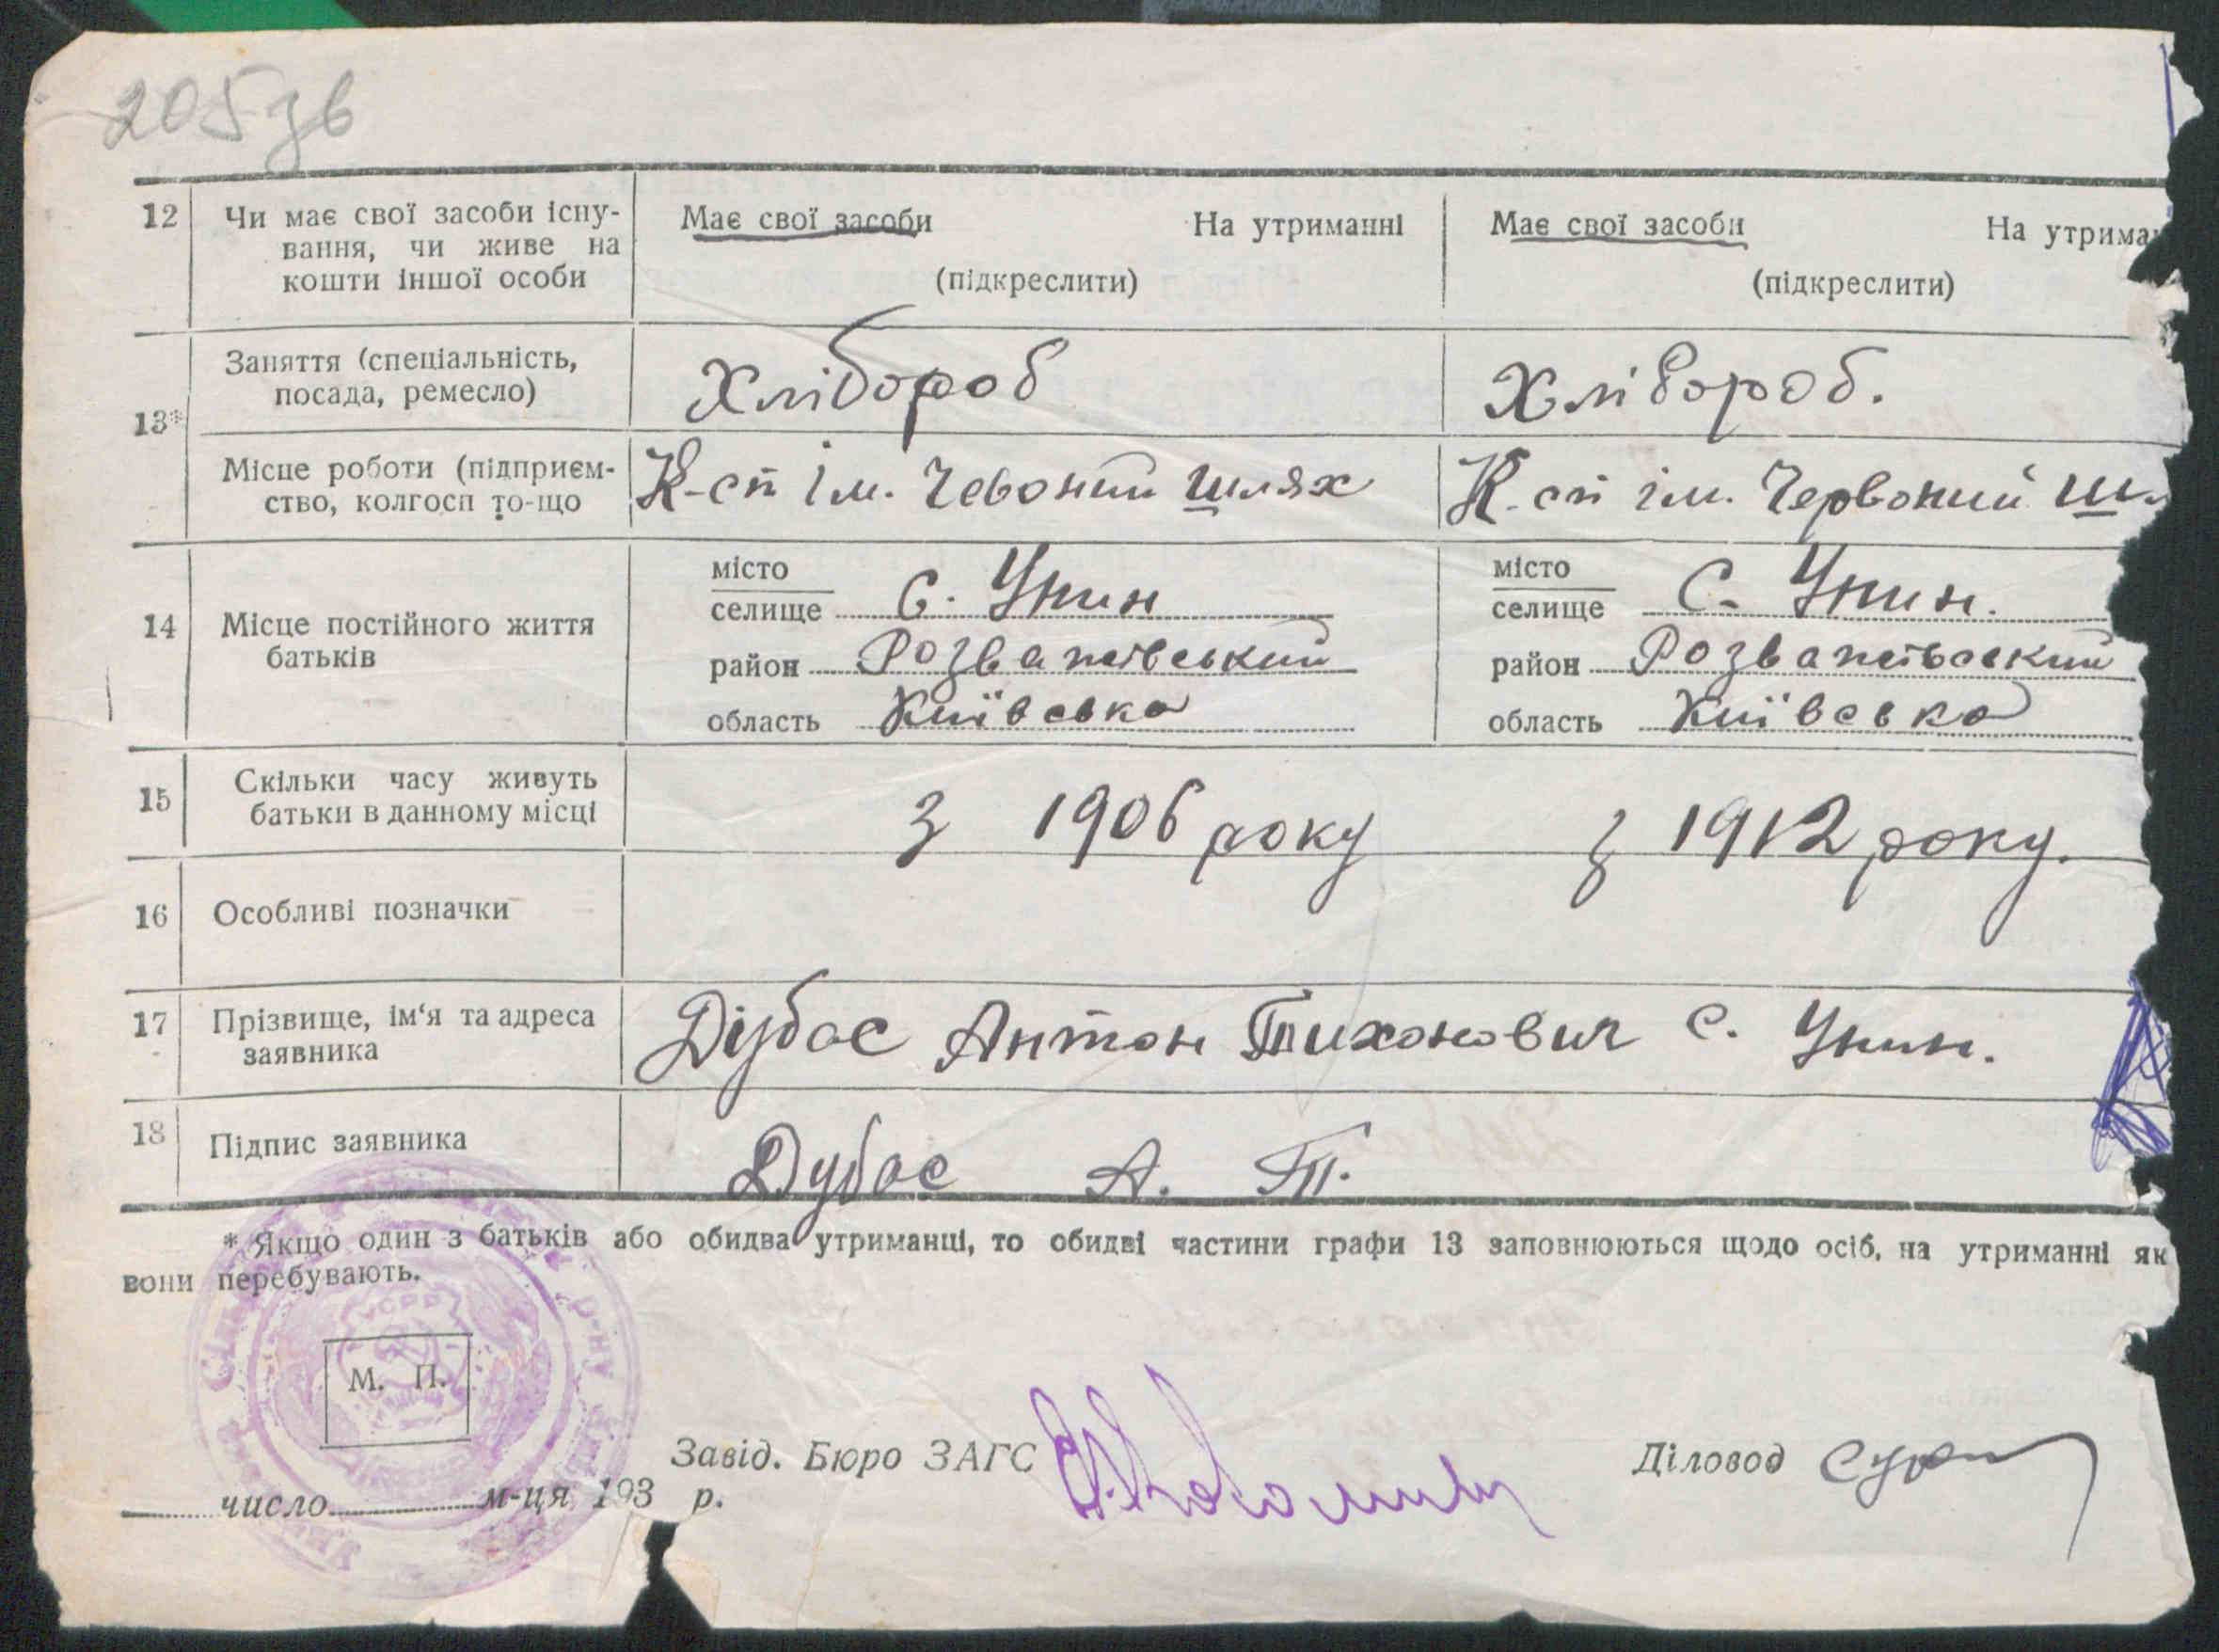 205зв
12 Чи має свої засоби існу- Має свої засоби На утриманні Має свої засоби На утриман
вання, чи живе на
кошти іншої особи (підкреслити) (підкреслити)
Заняття (спеціальність,
посада, ремесло) Хлібороб Хлібороб.
13*
Місце роботи (підприєм- К-сп ім. Чевоний шлях К-сп ім. Червоний шл
ство, колгосп то-що
місто місто
селище с. Унин селище с. Унин.
14 Місце постійного життя
батьків район Розважівський район Розважівський
область Київська область Київська
15 Скільки часу живуть
батьки в данному місці З 1906 року З 1912 року.
16 Особливі позначки
17 Прізвище, ім‘я та адреса Дубас Антон Тихонович с. Унин.
заявника
18 Підпис заявника Дубас А. Т.
* Якщо один з батьків або обидва утриманці, то обидві частини графи 13 заповнюються щодо осіб, на утриманні як
вони перебувають.
УСРР
р-ну
М. П.
Завід. Бюро ЗАГС Діловод
число м-ця 193 р.